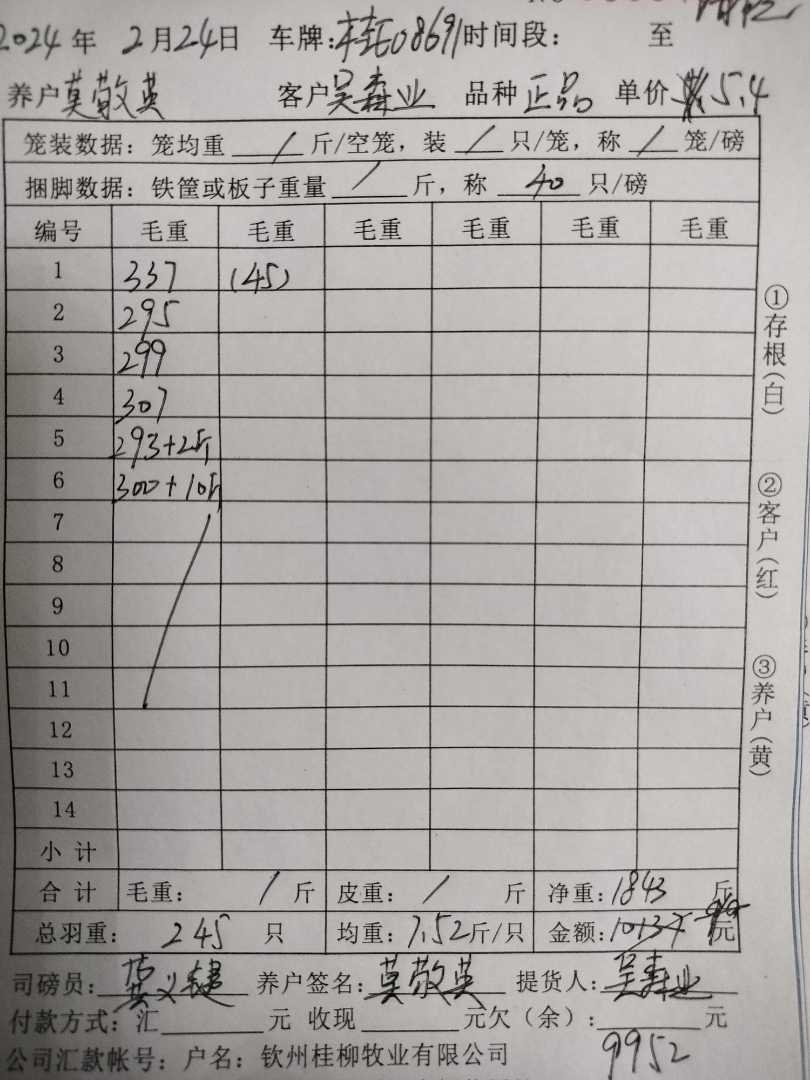 2024年 2月24日 车牌:桂E08691时间段: 至
养户莫敬英 客户吴森业 品种正品 单价 5.4
笼装数据:笼均重 / 斤/空笼,装 / 只/笼,称 / 笼/磅
捆脚数据:铁筐或板子重量 / 斤,称 40 只/磅
编号 毛重 毛重 毛重 毛重 毛重 毛重
1 337 (45)
2 295
3 299
4 307
5 293+2斤
6 300+10斤
7
8
9
10
11
12
13
14
小计
合计 毛重: / 斤 皮重: / 斤 净重:1843 斤
总羽重: 245 只 均重:7.52斤/只 金额: 元
司磅员: 养户签名:莫敬英 提货人:吴森业
付款方式:汇 元 收现 元欠(余): 元
9952
公司汇款帐号:户名:钦州桂柳牧业有限公司
①存根(白)
②客户(红)
③养户(黄)